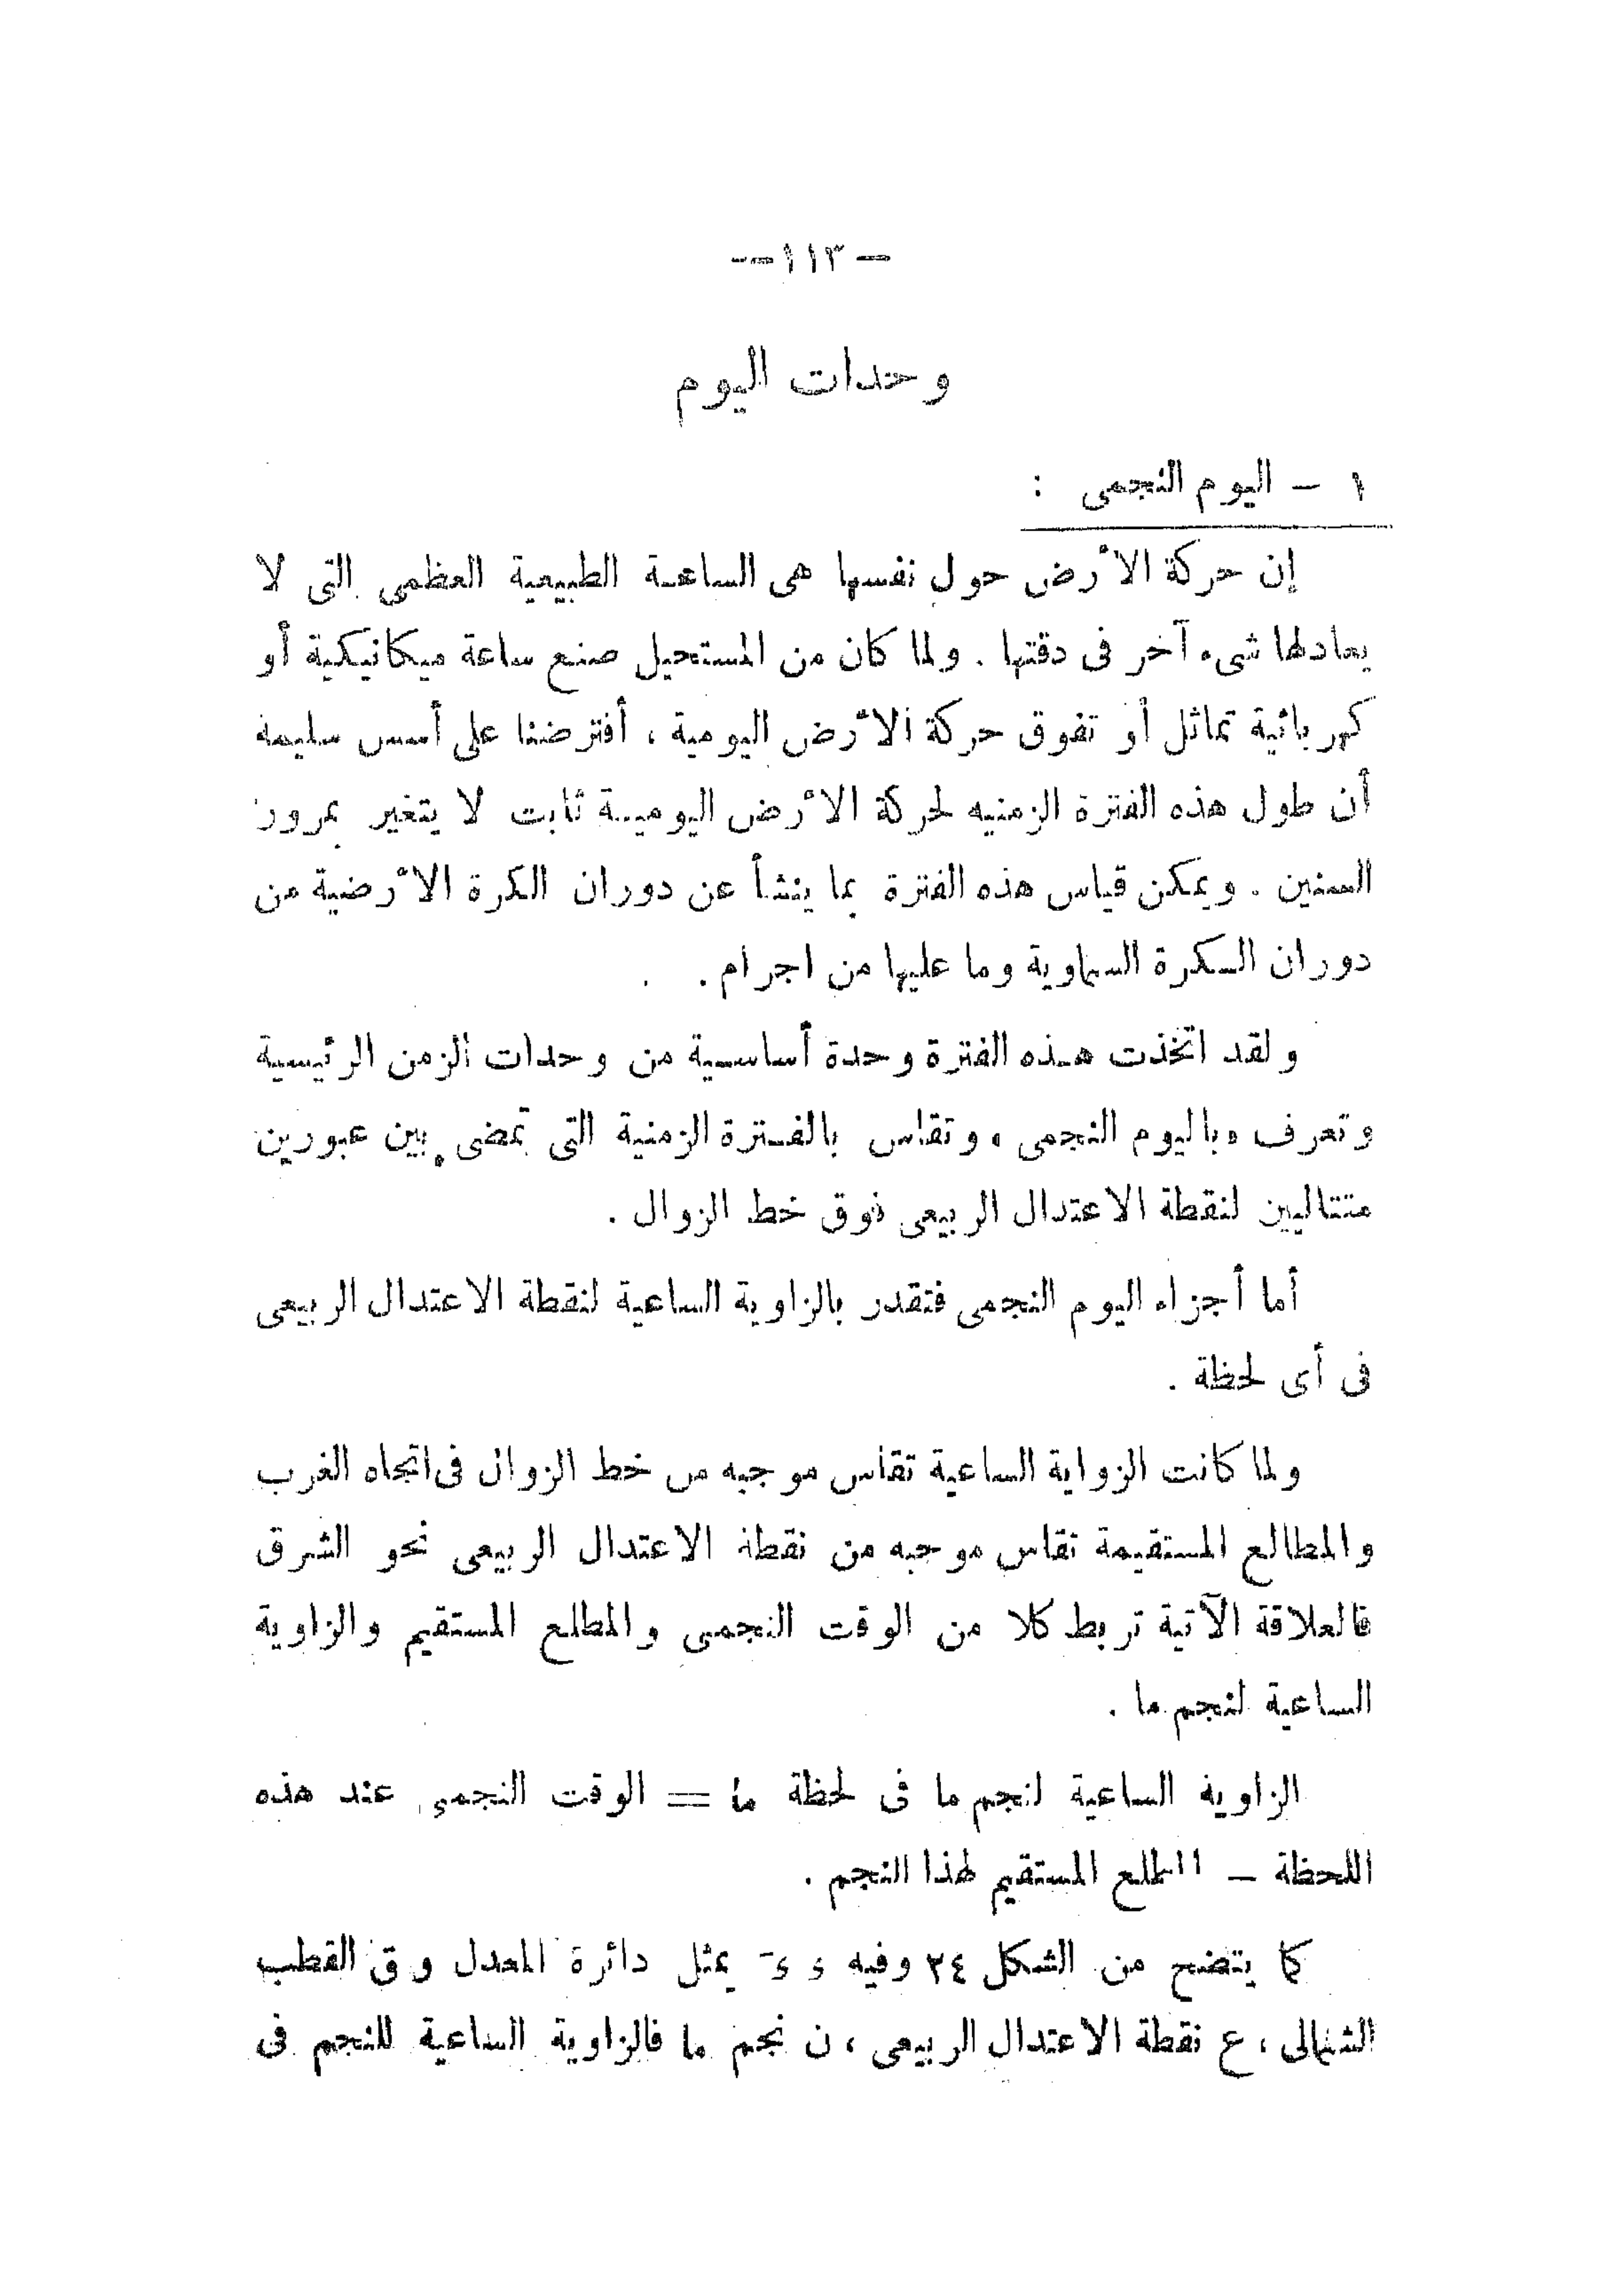 — ١١٣ —
وحدات اليوم
١ – اليوم النجمى :
إن حركة الأرض حول نفسها هى الساعة الطبيعية العظمى التى لا
يعادلها شىء آخر فى دقتها . ولما كان من المستحيل صنع ساعة ميكانيكية أو
كهربائية تماثل أو تفوق حركة الأرض اليومية ، أفترضنا على أسس سليمة
أن طول هذه الفترة الزمنيه لحركة الأرض اليومية ثابت لا يتغير بمرور
السنين . ويمكن قياس هذه الفترة بما ينشأ عن دوران الكرة الأرضية من
دوران الكرة السماوية وما عليها من اجرام .
ولقد اتخذت هذه الفترة وحدة أساسية من وحدات الزمن الرئيسية
وتعرف «باليوم النجمى» وتقاس بالفترة الزمنية التى تمضى بين عبورين
متتاليين لنقطة الاعتدال الربيعى فوق خط الزوال .
أما أجزاء اليوم النجمى فتقدر بالزاوية الساعية لنقطة الاعتدال الربيعى
فى أى لحظة .
ولما كانت الزواية الساعية تقاس موجبه من خط الزوال فى اتجاه الغرب
والمطالع المستقيمة تقاس موجبه من نقطة الاعتدال الربيعى نحو الشرق
فالعلاقة الآتية تربط كلا من الوقت النجمى والمطلع المستقيم والزاوية
الساعية لنجم ما .
الزاوية الساعية لنجم ما فى لحظة ما = الوقت النجمى عند هذه
اللحظة – المطلع المستقيم لهذا النجم .
كما يتضح من الشكل ٢٤ وفيه ء ء َ يمثل دائرة المعدل و ق القطب
الشمالى ، ع نقطة الاعتدال الربيعى ، ن نجم ما فالزاوية الساعية للنجم فى